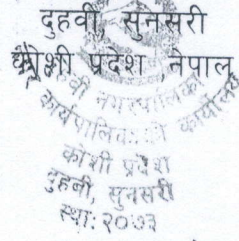 दुहवी, सुनसरी
कोशी प्रदेश ,नेपाल
नगरपालिका
कार्यपालिकाको कार्यालय
कोशी प्रदेश
दुहवी, सुनसरी
स्था: २०७३